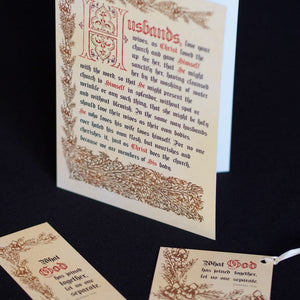 Husbands, love your
wives, as Christ loved the
church and gave Himself
up for her, that He might
sanctify her, having cleansed
her by the washing of water
with the word, so that He might present the
church to Himself in splendor, without spot or
wrinkle or any such thing, that she might be holy
and without blemish. In the same way husbands
should love their wives as their own bodies.
He who loves his wife loves himself. For no one
ever hated his own flesh, but nourishes and
cherishes it, just as Christ does the church,
because we are members of His body.
What God
has joined
together,
let no one
separate.
What God
has joined together,
let no one
separate.